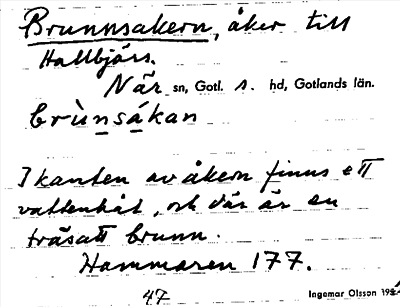 Brunnsakern, åker till
Hallbjärs.
När sn, Gotl. s. hd, Gotlands län.
brùnsákan
I kanten av åkern finns ett
vattenhål, och där är en
träsatt brunn.
Hammaren 177.
47 Ingemar Olsson